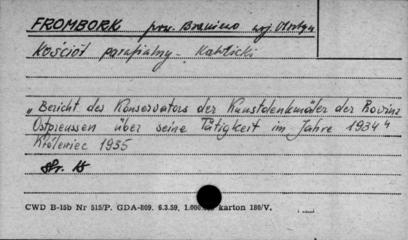 FROMBORK pow. Braniewo woj. Olsztyn
Kościół parafialny - Katolicki
"Bericht des Konservators der Kunstdenkmäler der Provinz
Ostpreussen über seine Tätigkeit im Jahre 1934"
Królewiec 1935
str. 15
CWD B-15b Nr 515/P. GDA-809. 6.3.59, 1.000 karton 180/V.